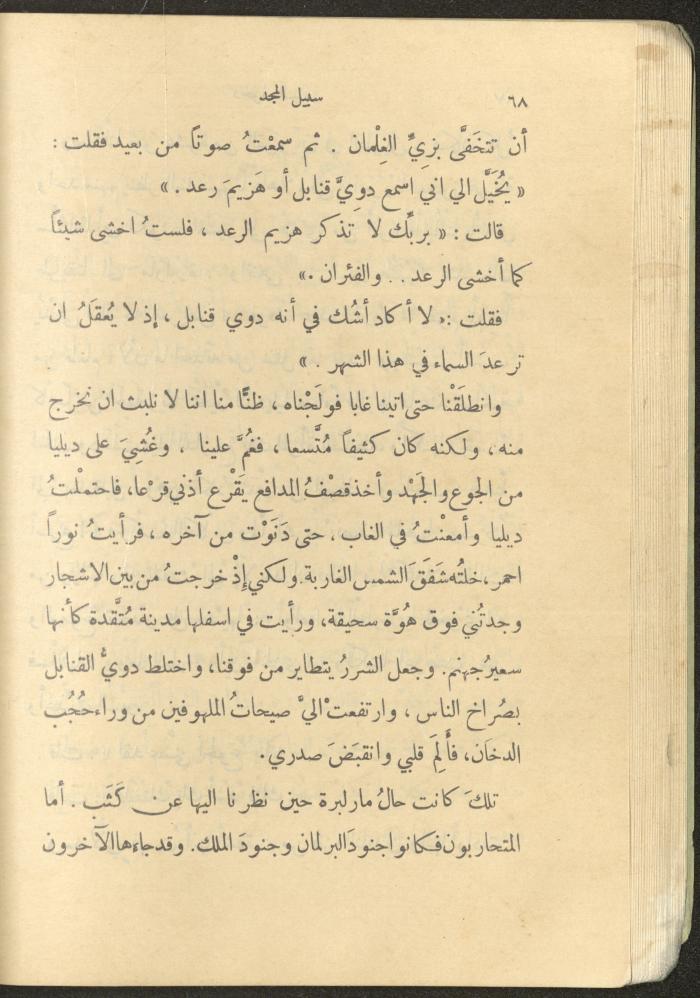 ٦٨ سبيل المجد
أن تتخَفَّى بزيِّ الغِلْمان . ثم سمعْتُ صوتاً من بعيد فقلت :
« يُخَيَّل الي اني اسمع دويَّ قنابل أو هَزيمَ رعد . »
قالت : « بربِّك لا تذكر هزيم الرعد ، فلستُ اخشى شيئاً
كما أخشى الرعد . . والفئران . »
فقلت : « لا أكاد أشُك في أنه دوي قنابل ، إذ لا يُعقَلُ ان
ترعدَ السماء في هذا الشهر . »
وانطلَقْنا حتى اتينا غابا فولَجْناه ، ظنًّا منا اننا لا نلبث ان نخرج
منه ، ولكنه كان كثيفاً مُتَّسعا ، فغُمَّ علينا . وغُشِيَ على ديليا
من الجوع والجَهْد وأخذ قصْفُ المدافع يَقْرع أذني قرْعا ، فاحتملْتُ
ديليا وأمعنْتُ في الغاب ، حتى دَنَوْت من آخره ، فرأيتُ نوراً
احمر ، خلتُه شَفَقَ الشمس الغاربة . ولكني إذْ خرجتُ من بين الاشجار
وجدتُني فوق هُوَّة سحيقة ، ورأيت في اسفلها مدينة مُتَّقدة كأنها
سعيرُ جهنم . وجعل الشررُ يتطاير من فوقنا ، واختلط دويُّ القنابل
بصُراخ الناس ، وارتفعتْ اليَّ صيحاتُ الملهوفين من وراء حُجُب
الدخَان ، فأَلِمَ قلبي وانقبَضَ صدري .
تلكَ كانت حالُ مارلبرة حين نظرنا اليها عن كَثَب . أما
المتحاربون فكانوا جنودَ البرلمان وجنودَ الملك . وقد جاءها الآخرون